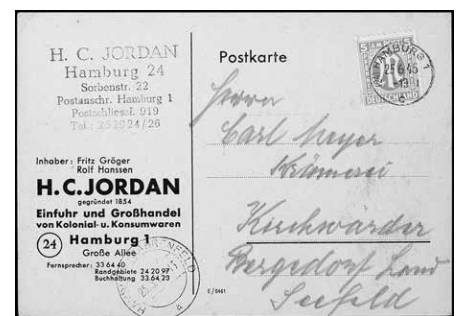 H. C. JORDAN
Hamburg 24
Sorbenstr. 22
Postanschr. Hamburg 1
Postschliessf. 919
Tel.: 252924/26
Inhaber: Fritz Gröger
Rolf Hanssen
H.C.JORDAN
gegründet 1854
Einfuhr und Großhandel
von Kolonial- u. Konsumwaren
24 Hamburg 1
Große Allee
Fernsprecher: 33 64 40
Randgebiete 24 20 97
Buchhaltung 33 64 23
Postkarte
HAMBURG 1
-13
c
Herrn
Carl Meyer
Krämerei
Kirchwärder
Bergedorf Land
Seefeld